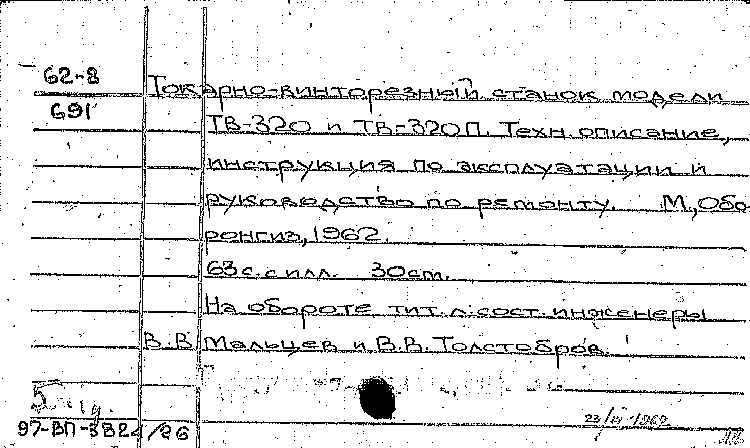 62-8
691
Токарно-винторезный станок модели
ТВ-320 и ТВ-320П. Техн. описание,
инструкция по эксплуатации и
руководство по ремонту. М., Обо
ронгиз, 1962.
63 с. с илл. 30 cm.
На обороте тит. л: сост. инженеры
В.В. Мальцев и В.В. Толстобров.
97-ВП-3824/26